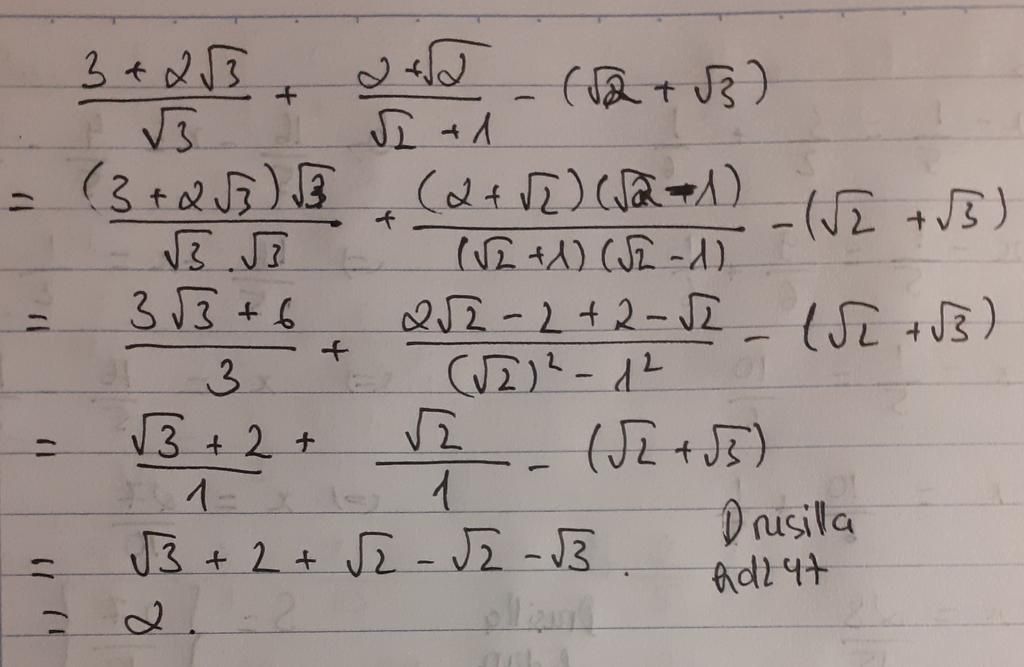 (3 + 2√3)/√3 + (2 + √2)/(√2 + 1) - (√2 + √3)
= ((3 + 2√3)√3)/(√3 . √3) + ((2 + √2)(√2 - 1))/((√2 + 1)(√2 - 1)) - (√2 + √3)
= (3√3 + 6)/3 + (2√2 - 2 + 2 - √2)/((√2)² - 1²) - (√2 + √3)
= (√3 + 2)/1 + √2/1 - (√2 + √3)
= √3 + 2 + √2 - √2 - √3.
= 2.
Drusilla